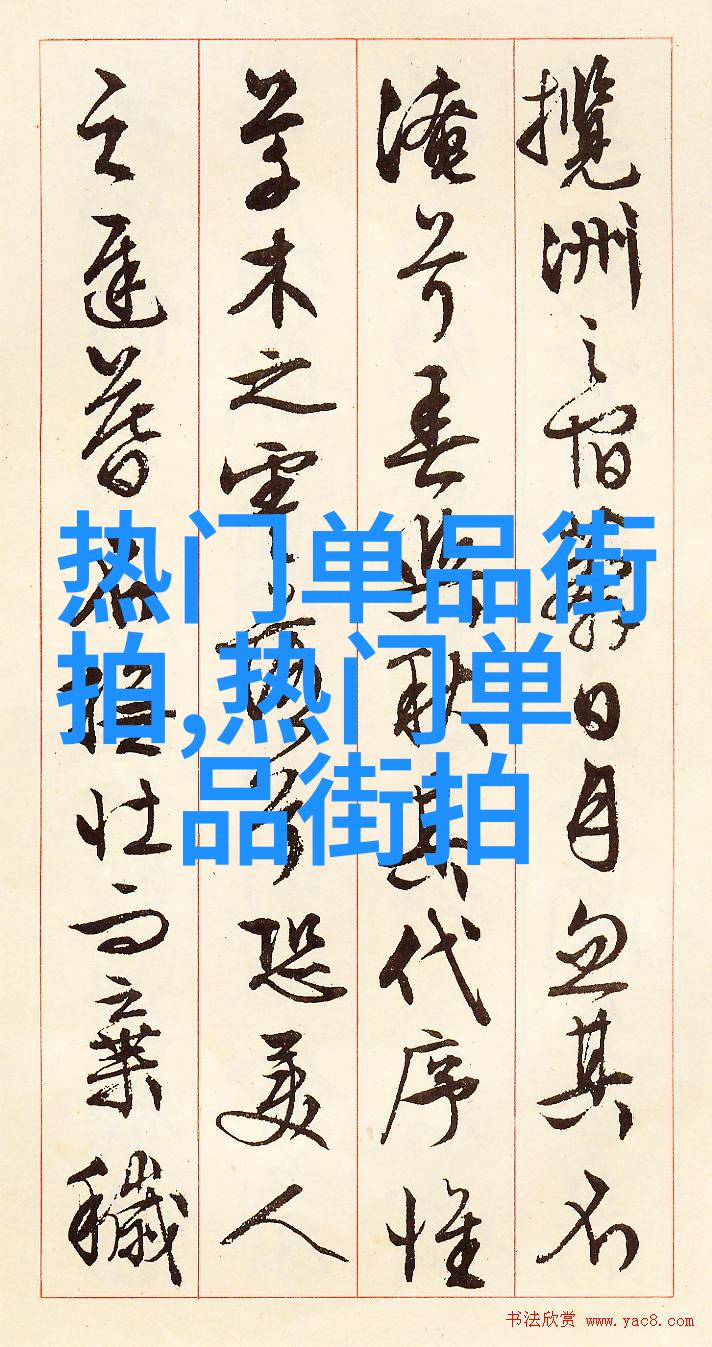 攬洲之宿莽日月忽其不
淹兮春與秋其代序惟
草木之零落兮恐美人
之遲暮不撫壯而棄穢
热门单品街
拍,热门单
品街拍
书法欣赏 www.yac8.com